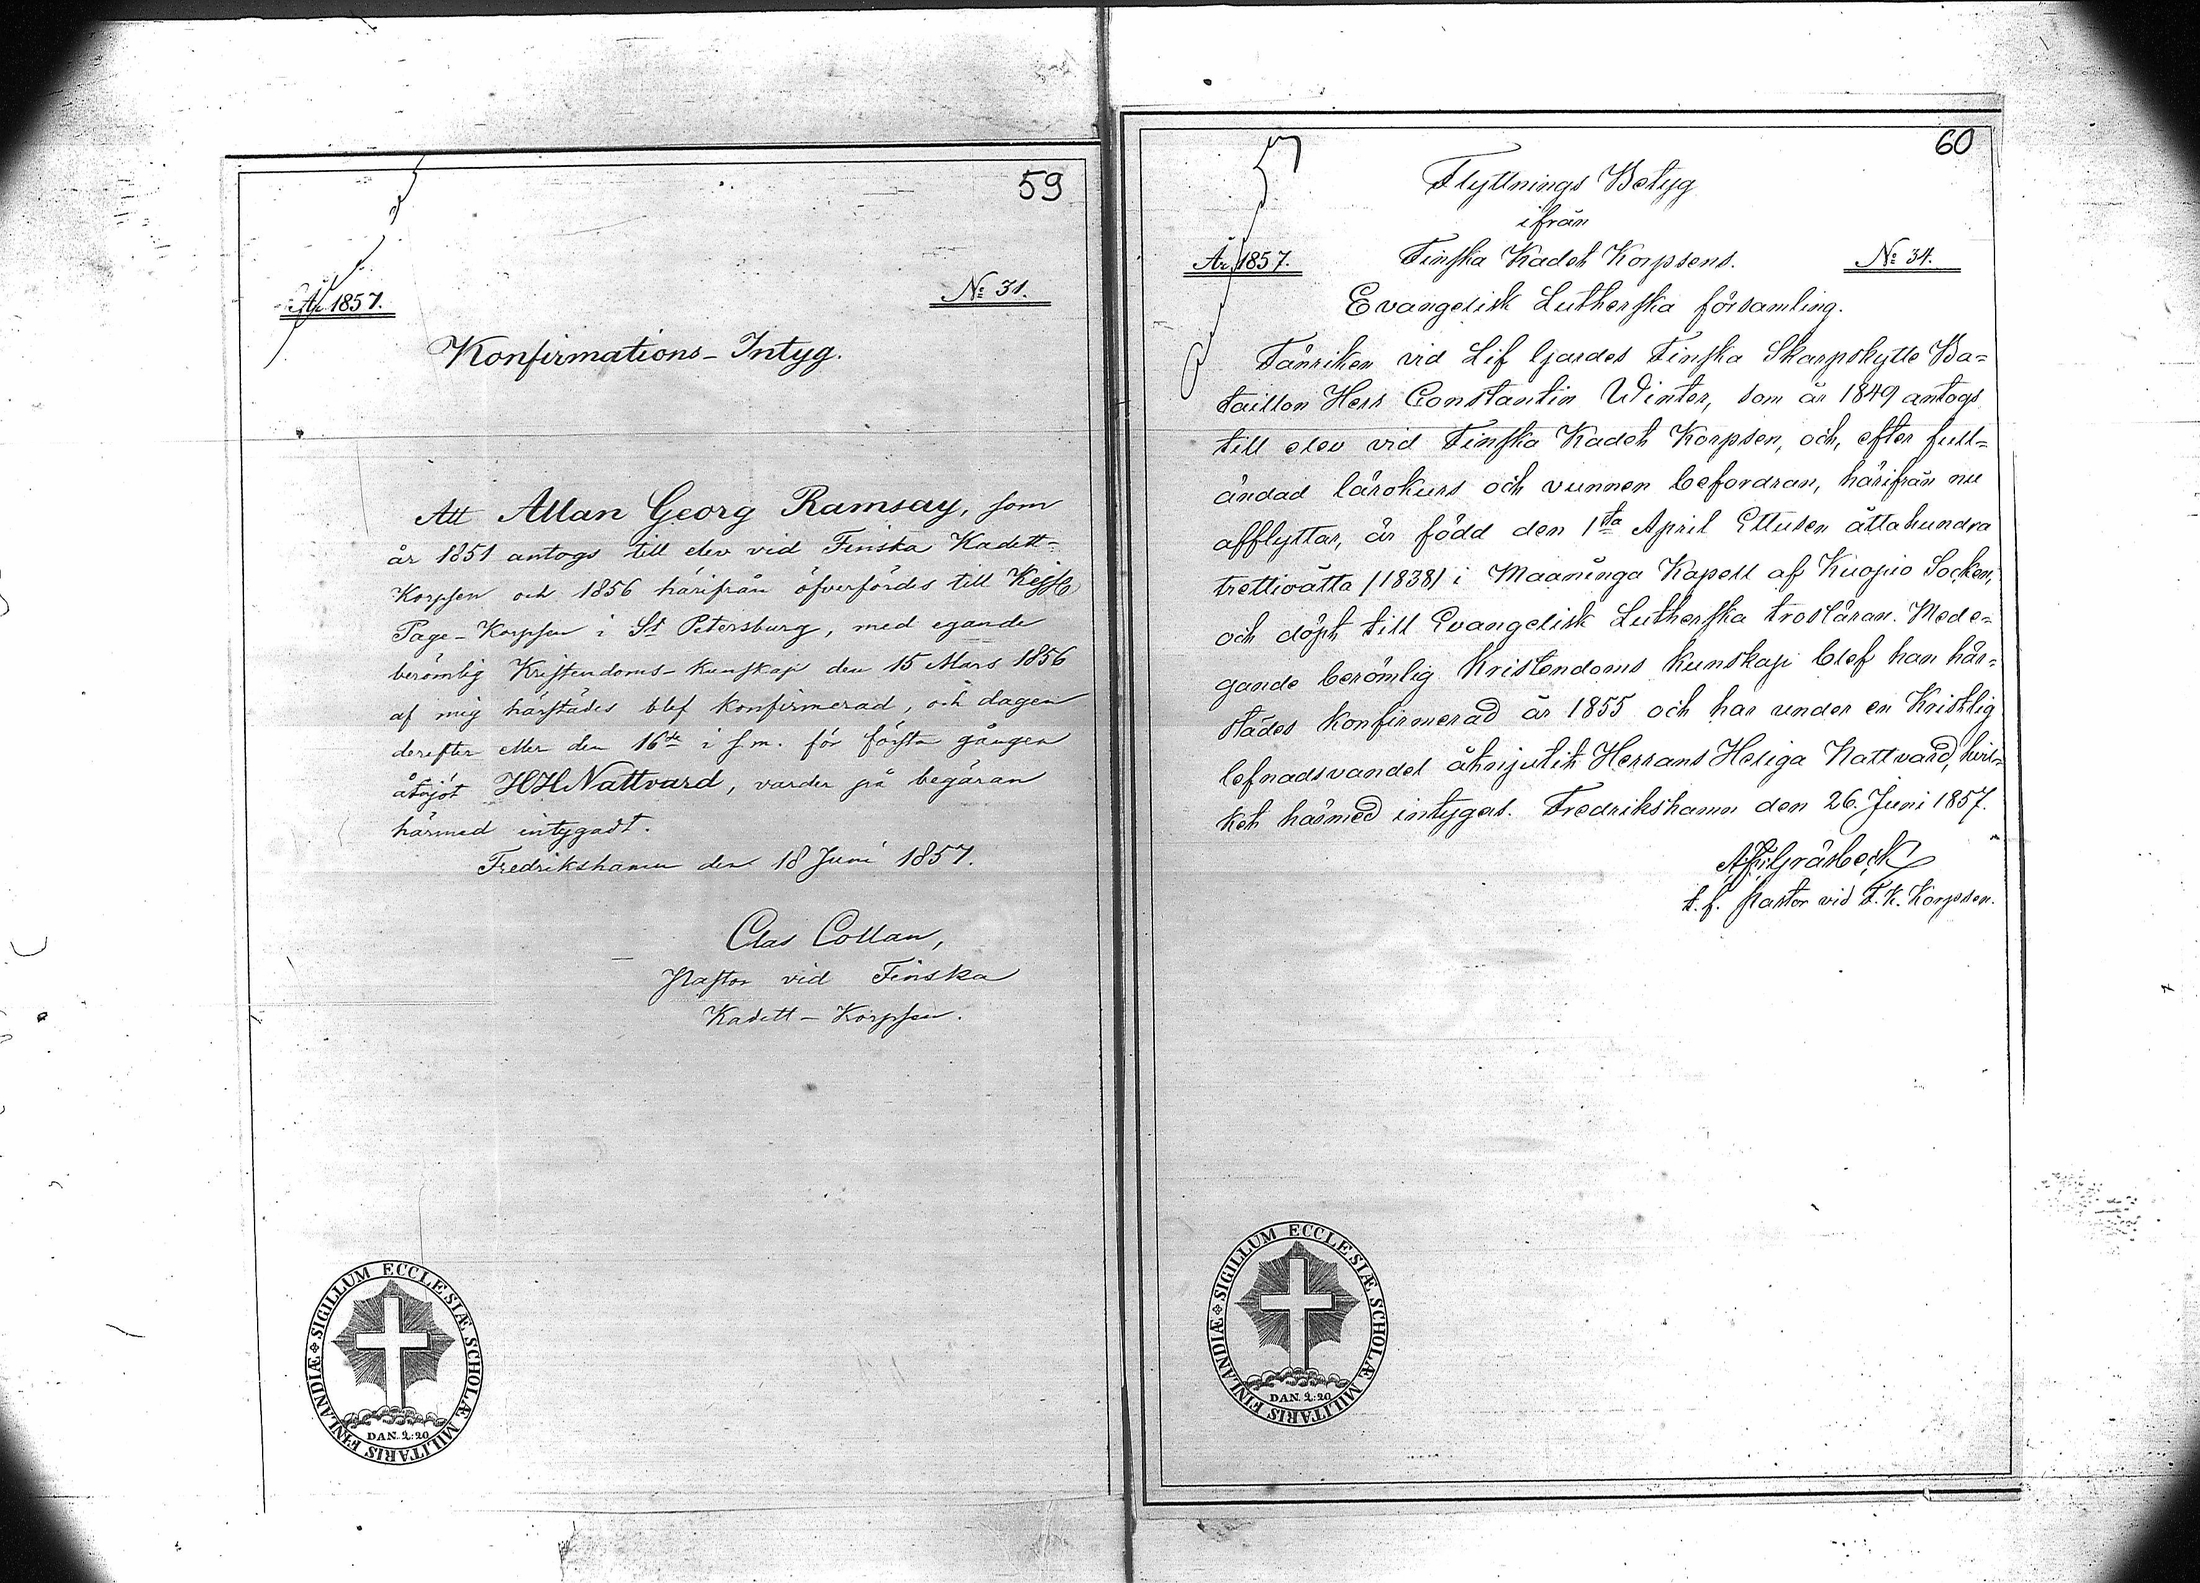 59
År 1857.
No 31.
Konfirmations-Intyg.
Att Allan Georg Ramsay, som
år 1851 antogs till elev vid Finska Kadett-
Korpsen och 1856 härifrån öfverfördes till Kejsl.
Page-Korpsen i St Petersburg, med egande
berömlig Kristendoms-kunskap den 15 Mars 1856
af mig härstädes blef konfirmerad, och dagen
derefter eller den 16de i s.m. för första gången
åtnjöt HHNattvard, varder på begäran
härmed intygadt.
Fredrikshamn den 18 Juni 1857.
Clas Collan,
Pastor vid Finska
Kadett-Korpsen.
SIGILLUM ECCLESIÆ SCHOLÆ MILITARIS FINLANDIÆ
DAN. 2:20
60
Flyttnings Betyg
ifrån
År 1857.
Finska Kadet Korpsens.
No 34.
Evangelisk Lutherska församling.
Fänriken vid Lif Gardes Finska Skarpskytte Ba=
taillon Herr Constantin Winter, som år 1849 antogs
till elev vid Finska Kadet Korpsen, och, efter full=
ändad lärokurs och vunnen befordran, härifrån nu
afflyttar, är född den 1sta April Ettusen åttahundra
trettioåtta /1838/ i Maaninga Kapell af Kuopio Socken,
och döpt till Evangelisk Lutherska trosläran. Mede=
gande berömlig Kristendoms kunskap blef han här=
städes konfirmerad år 1855 och har under en Kristlig
lefnadsvandel åtnjutit Herrans Heliga Nattvard, hvil=
ket härmed intygas. Fredrikshamn den 26. Juni 1857.
Gråsbeck
t.f. Pastor vid F. K. Korpsen.
SIGILLUM ECCLESIÆ SCHOLÆ MILITARIS FINLANDIÆ
DAN. 2:20